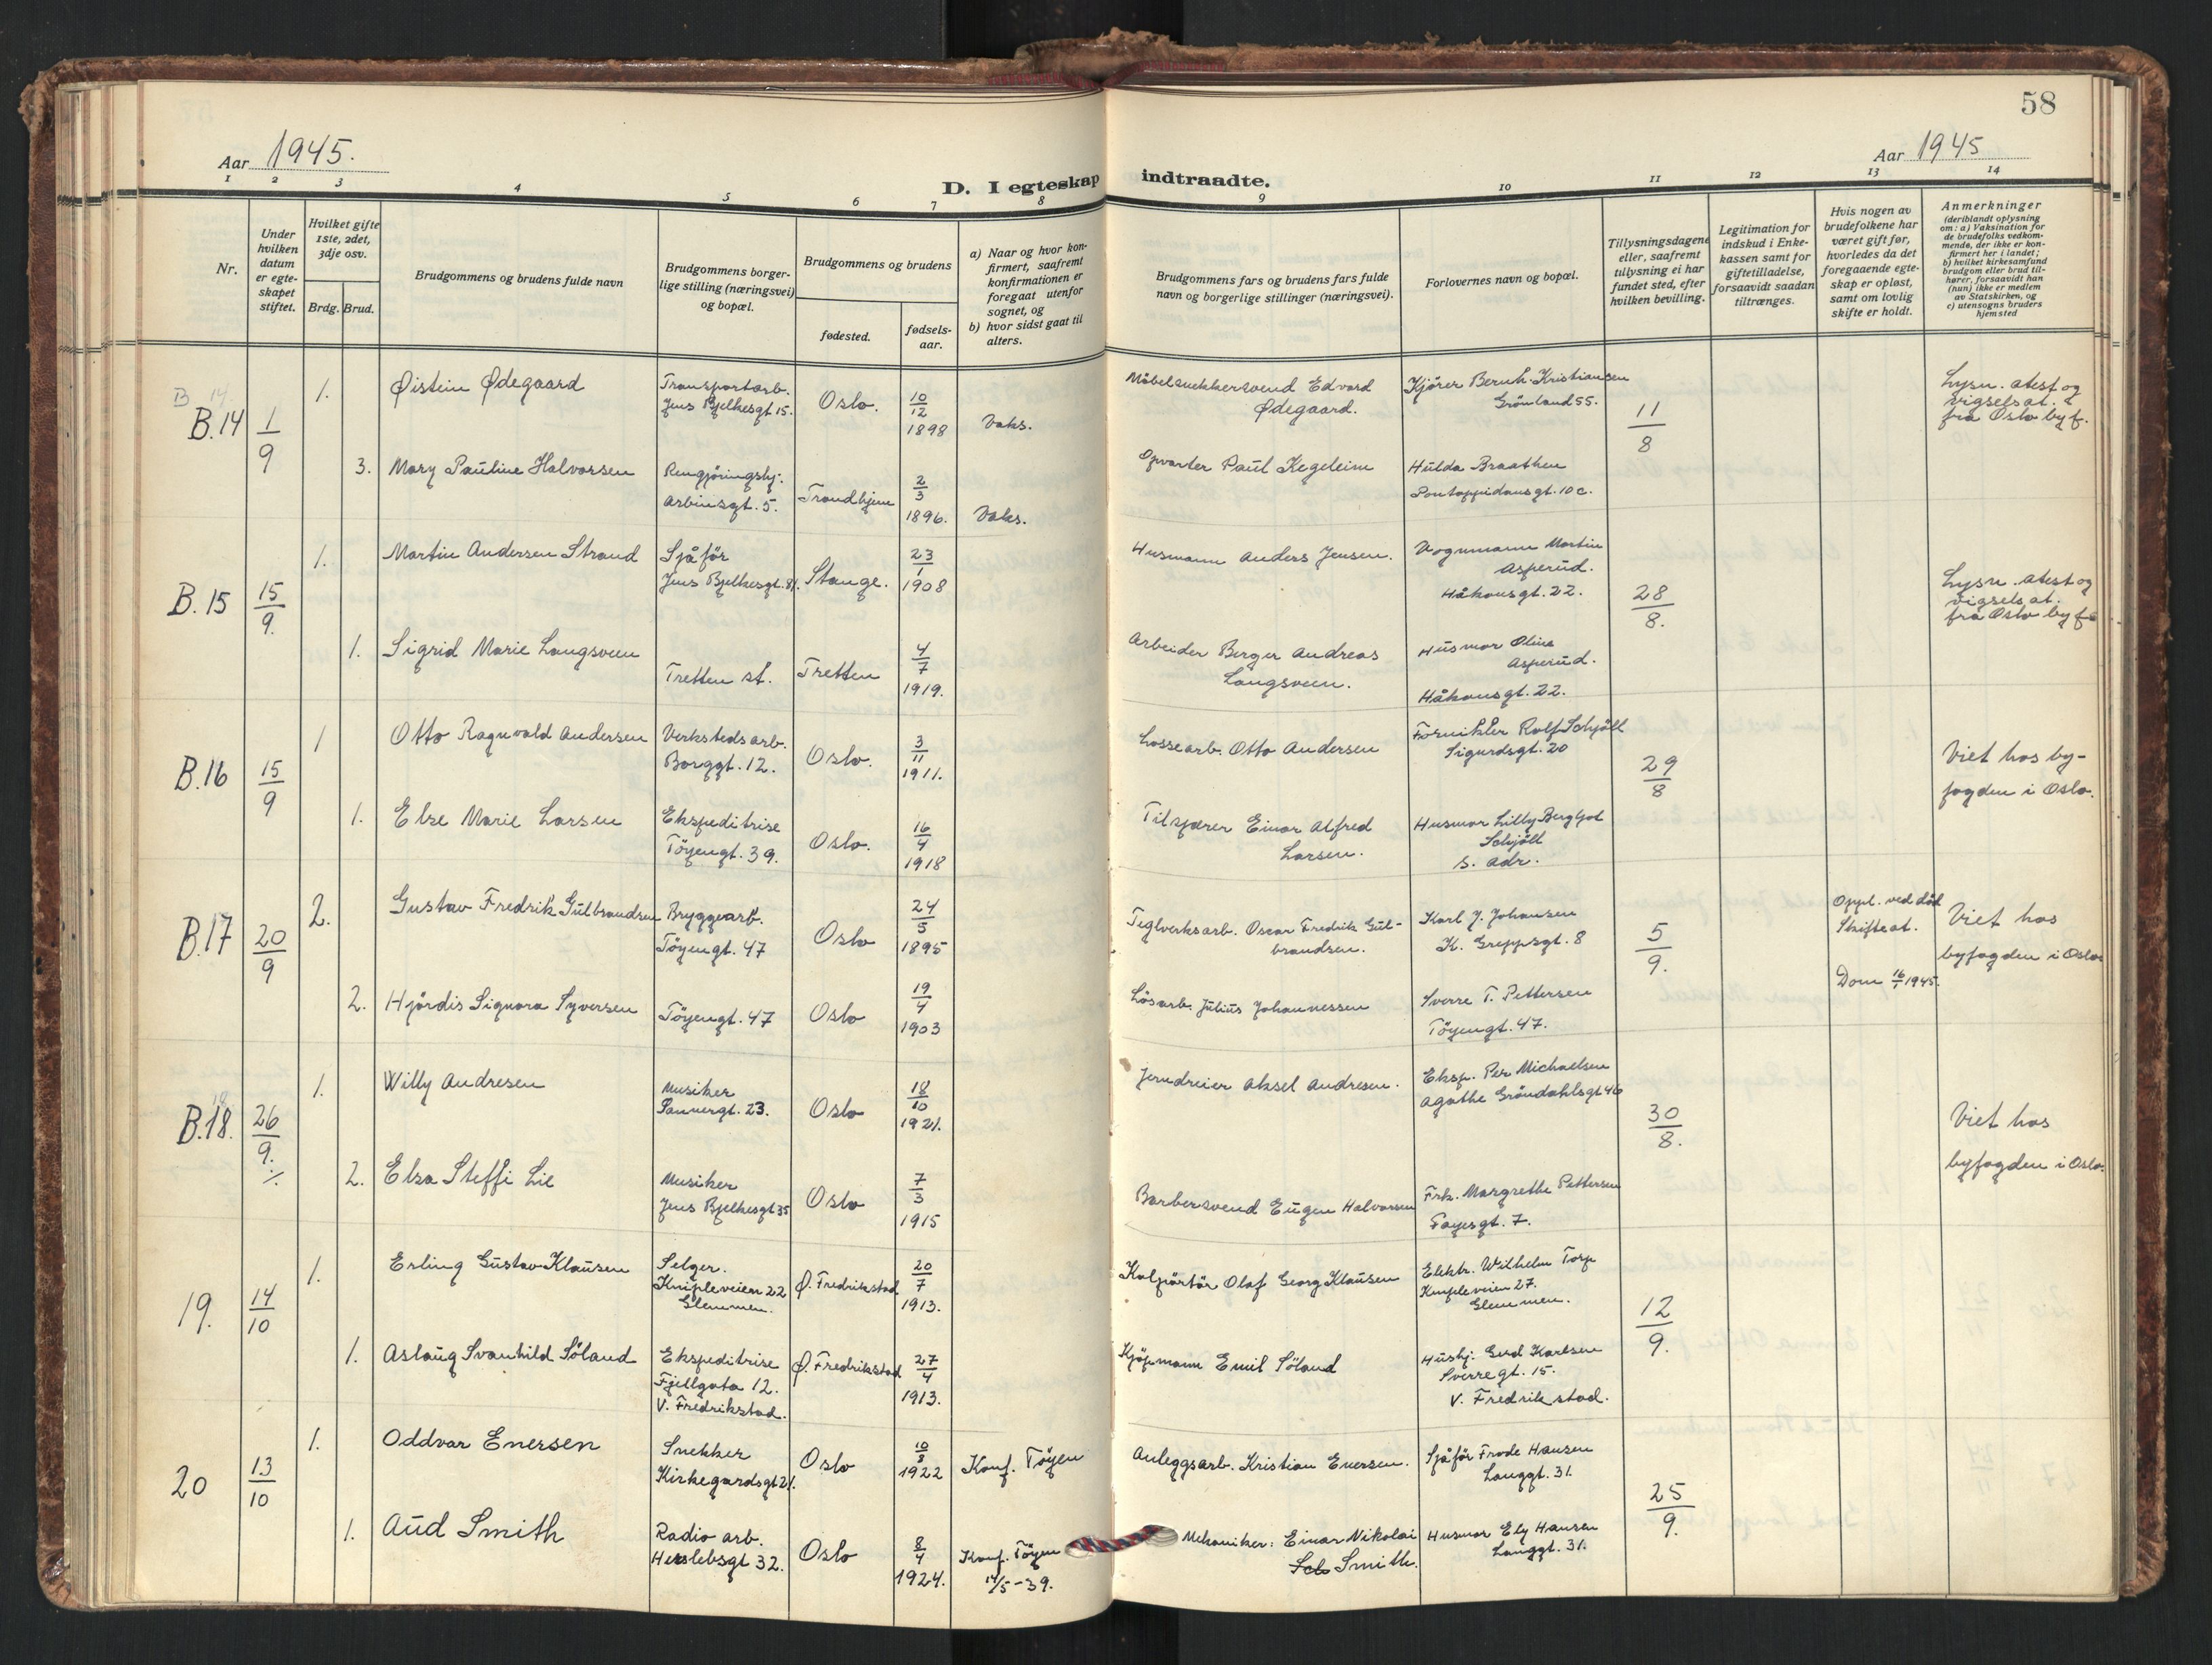 58
Aar 1945.
Aar 1945
D. I egteskap indtraadte.
1 2 3 4 5 6 7 8 9 10 11 12 13 14
Nr.
Under
hvilken
datum
er egte-
skapet
stiftet.
Hvilket gifte
1ste, 2det,
3dje osv.
Brdg. Brud.
Brudgommens og brudens fulde navn
Brudgommens borger-
lige stilling (næringsvei)
og bopæl.
Brudgommens og brudens
fødested.
fødsels-
aar.
a) Naar og hvor kon-
firmert, saafremt
konfirmationen er
foregaat utenfor
sognet, og
b) hvor sidst gaat til
alters.
Brudgommens fars og brudens fars fulde
navn og borgerlige stillinger (næringsvei).
Forlovernes navn og bopæl.
Tillysningsdagene
eller, saafremt
tillysning ei har
fundet sted, efter
hvilken bevilling.
Legitimation for
indskud i Enke-
kassen samt for
giftetilladelse,
forsaavidt saadan
tiltrænges.
Hvis nogen av
brudefolkene har
været gift før,
hvorledes da det
foregaaende egte-
skap er opløst,
samt om lovlig
skifte er holdt.
Anmerkninger
(deriblandt oplysning
om: a) Vaksination for
de brudefolks vedkom-
mende, der ikke er kon-
firmert her i landet;
b) hvilket kirkesamfund
brudgom eller brud til-
hører, forsaavidt han
(hun) ikke er medlem
av Statskirken, og
c) utensogns bruders
hjemsted
B 14.
B.14
1/9
1.
Øistein Ødegaard
Transportarb.
Jens Bjelkesgt 15.
Oslo.
10/12
1898
Vaks.
Möbelsnekkersvend Edvard
Ødegaard.
Kjörer Bernh. Kristiansen
Grönland 55.
11/8
Lysn. atest og
vigselsat.
fra Oslo byf.
3.
Mary Pauline Halvorsen
Rengjöringshj:
Arbinsgt. 5.
Trondhjem
2/3
1896.
Vaks.
Opvarter Paul Kegeleim
Hulda Braathen
Pontoppidansgt. 10 c.
B. 15
15/9.
1.
Martin Andersen Strand
Sjåför
Jens Bjelkesgt. 81.
Stange.
23/1
1908
Husmann Anders Jensen.
Vognmann Martin
Asperud.
Håkonsgt. 22.
28/8.
Lysn. atest og
vigselsat.
fra Oslo byf.
1.
Sigrid Marie Langsveen
Tretten st.
Tretten
4/7
1919.
Arbeider Berger Andreas
Langsveen.
Husmor Oline
Asperud.
Håkonsgt. 22.
B.16
15/9
1
Otto Ragnvald Andersen
Verkstedsarb.
Borggt. 12.
Oslo.
3/11
1911.
Lossearb. Otto Andersen
Fornikler Rolf Schjöll
Sigurdsgt. 20
29/8
Viet hos by-
fogden i Oslo.
1.
Else Marie Larsen
Ekspeditrise
Töyengt. 39.
Oslo.
16/4
1918
Tilskjærer Einar Alfred
Larsen.
Husmor Lilly Bergljot
Schjöll
s. adr.
B.17
20/9
2.
Gustav Fredrik Gulbrandsen
Bryggearb.
Töyengt. 47
Oslo
24/5
1895
Teglverksarb. Oscar Fredrik Gul-
brandsen.
Karl J. Johansen
K. Greppsgt. 8
5/9.
Oppl. ved död
Skifteat.
Viet hos
byfogden i Oslo
2.
Hjördis Signora Syversen
Töyengt. 47
Oslo
19/4
1903
Lösarb. Julius Johannessen
Sverre T. Pettersen
Töyengt. 47.
Dom 16/1 1945.
B.18.
26/9.
1.
Willy Andresen
Musiker
Sannergt. 23.
Oslo
18/10
1921.
Jerndreier Aksel Andresen.
Eksp. Per Michaelsen
Agathe Gröndahlsgt 46
30/8.
Viet hos
byfogden i Oslo.
2.
Elsa Steffi Lie
Musiker
Jens Bjelkesgt 35
Oslo
7/3
1915
Barbersvend Eugen Halvorsen
Frk. Margrethe Pettersen
Fayesgt. 7.
19.
14/10
1.
Erling Gustav Klausen
Selger.
Knipleveien 22
Glemmen.
Ø. Fredrikstad
20/7
1913.
Kolportör Olaf Georg Klausen
Elektr. Wilhelm Torp
Knipleveien 27.
Glemmen.
12/9.
1.
Aslaug Svanhild Söland
Ekspeditrise
Fjellgata 12.
V. Fredrikstad.
Ø. Fredrikstad
27/4
1913.
Kjöpmann Emil Söland
Hushj: Gerd Karlsen
Sverre gt. 15.
V. Fredrikstad.
20
13/10
1.
Oddvar Enersen
Snekker
Kirkegardsgt 21.
Oslo
10/8
1922
Konf. Töyen
Anleggsarb. Kristian Enersen.
Sjåför Frode Hansen
Langgt. 31.
25/9.
1.
Aud Smith
Radio arb.
Herslebsgt 32.
Oslo
8/4
1924.
Konf. Töyen
14/5-39.
Mekaniker: Einar Nikolai
Sch Smith.
Husmor Ely Hansen
Langgt. 31.